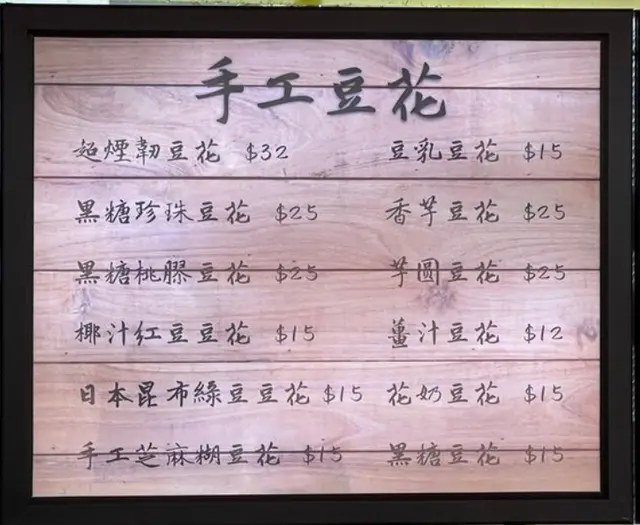 手工豆花
超煙韌豆花 $32 豆乳豆花 $15
黑糖珍珠豆花 $25 香芋豆花 $25
黑糖桃膠豆花 $25 芋圓豆花 $25
椰汁紅豆豆花 $15 薑汁豆花 $12
日本昆布綠豆豆花 $15 花奶豆花 $15
手工芝麻糊豆花 $15 黑糖豆花 $15